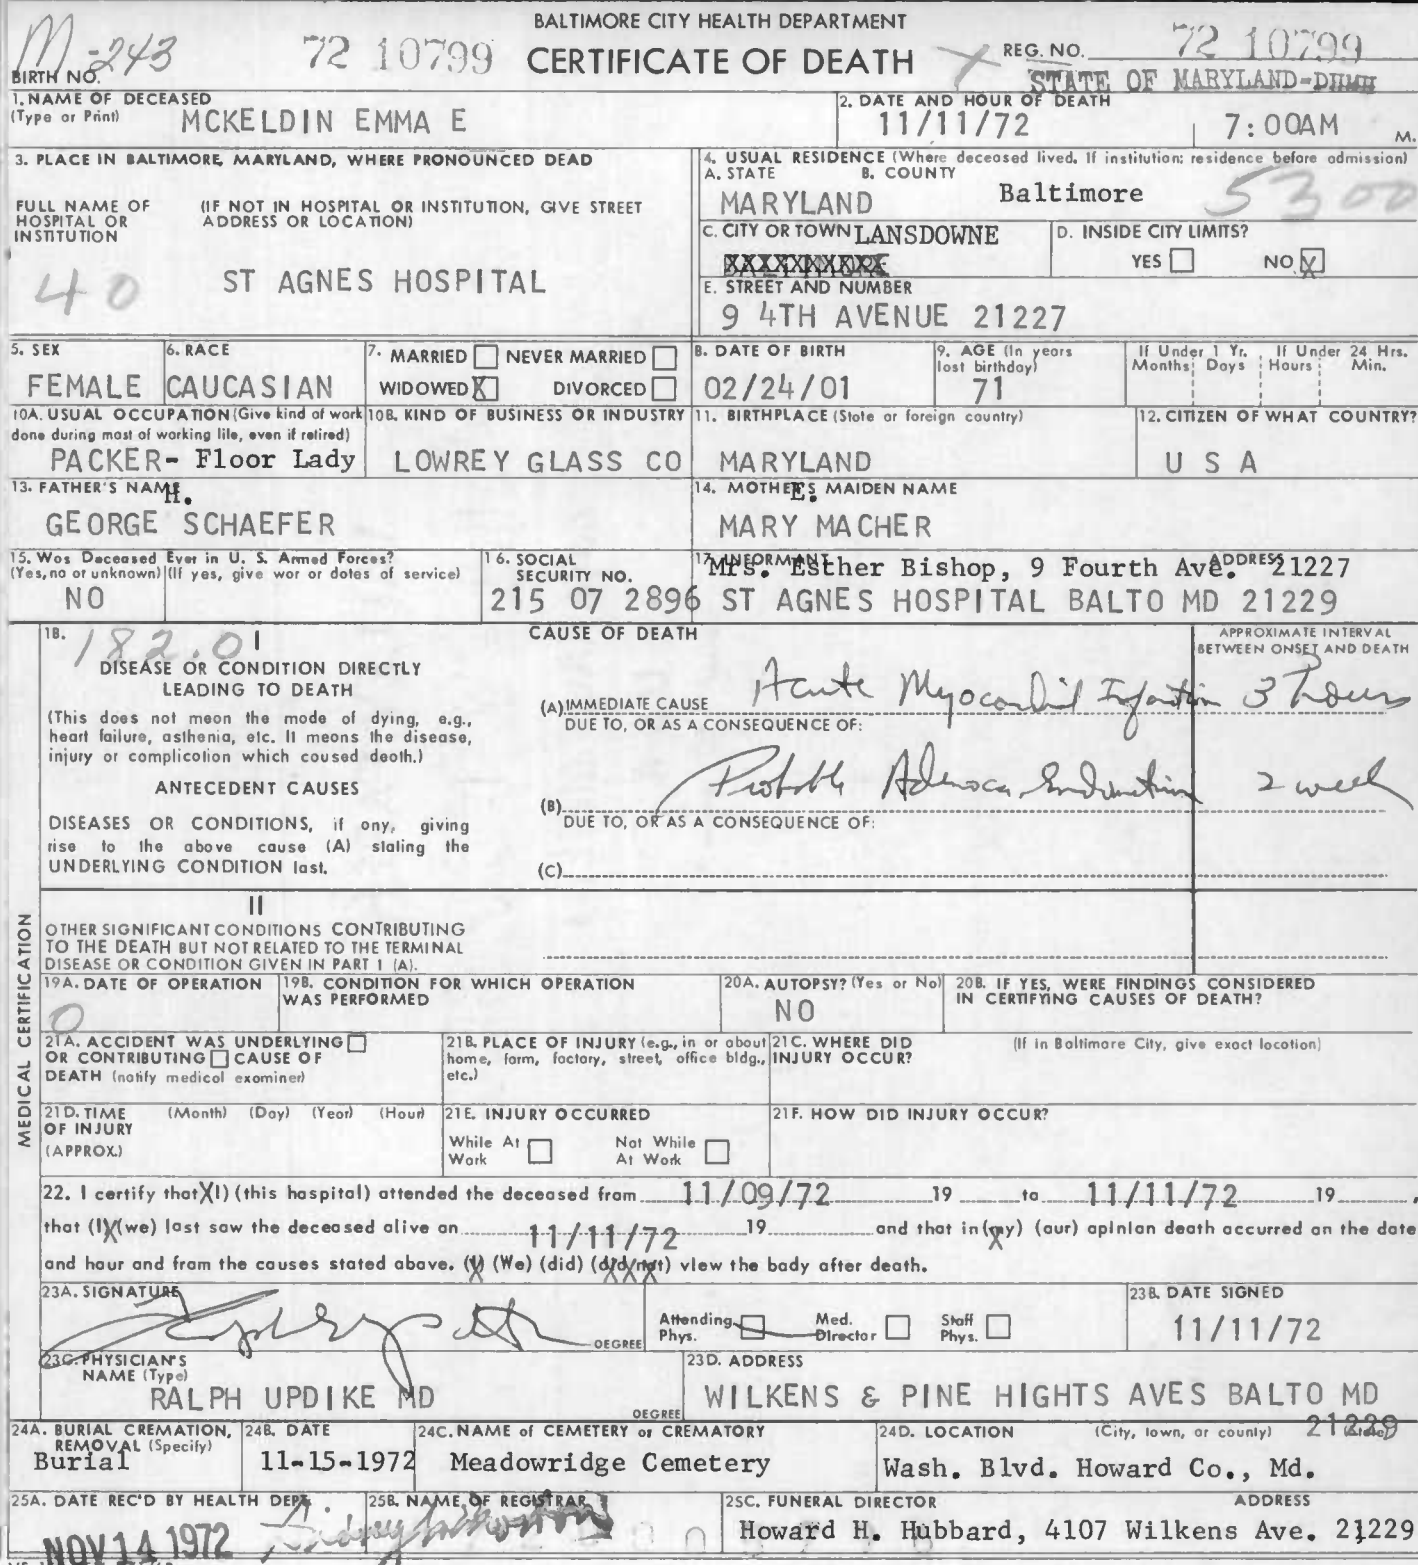 BALTIMORE CITY HEALTH DEPARTMENT
M-243 72 10799 CERTIFICATE OF DEATH REG. NO. 72 10799
BIRTH NO. STATE OF MARYLAND-DHMH
1. NAME OF DECEASED
(Type or Print) MCKELDIN EMMA E
2. DATE AND HOUR OF DEATH
11/11/72 7:00AM M.
3. PLACE IN BALTIMORE, MARYLAND, WHERE PRONOUNCED DEAD
FULL NAME OF HOSPITAL OR INSTITUTION
(IF NOT IN HOSPITAL OR INSTITUTION, GIVE STREET ADDRESS OR LOCATION)
40 ST AGNES HOSPITAL
4. USUAL RESIDENCE (Where deceased lived. If institution: residence before admission)
A. STATE B. COUNTY
MARYLAND Baltimore 5300
C. CITY OR TOWN LANSDOWNE
D. INSIDE CITY LIMITS?
YES NO X
E. STREET AND NUMBER
9 4TH AVENUE 21227
5. SEX
FEMALE
6. RACE
CAUCASIAN
7. MARRIED NEVER MARRIED
WIDOWED X DIVORCED
8. DATE OF BIRTH
02/24/01
9. AGE (In years last birthday)
71
If Under 1 Yr. If Under 24 Hrs.
Months Days Hours Min.
10A. USUAL OCCUPATION (Give kind of work
done during most of working life, even if retired)
PACKER- Floor Lady
10B. KIND OF BUSINESS OR INDUSTRY
LOWREY GLASS CO
11. BIRTHPLACE (State or foreign country)
MARYLAND
12. CITIZEN OF WHAT COUNTRY?
U S A
13. FATHER'S NAME
H.
GEORGE SCHAEFER
14. MOTHER'S MAIDEN NAME
E.
MARY MACHER
15. Was Deceased Ever in U. S. Armed Forces?
(Yes, no or unknown) (If yes, give war or dates of service)
NO
16. SOCIAL SECURITY NO.
215 07 2896
17. INFORMANT ADDRESS
Mrs. Esther Bishop, 9 Fourth Ave. 21227
ST AGNES HOSPITAL BALTO MD 21229
MEDICAL CERTIFICATION
18. 182.0 I
DISEASE OR CONDITION DIRECTLY
LEADING TO DEATH
(This does not mean the mode of dying, e.g.,
heart failure, asthenia, etc. It means the disease,
injury or complication which caused death.)
ANTECEDENT CAUSES
DISEASES OR CONDITIONS, if any, giving
rise to the above cause (A) stating the
UNDERLYING CONDITION last.
CAUSE OF DEATH
APPROXIMATE INTERVAL
BETWEEN ONSET AND DEATH
(A) IMMEDIATE CAUSE Acute Myocardial Infarction 3 hours
DUE TO, OR AS A CONSEQUENCE OF:
(B) Probable Adenoca. Endometrium 2 week
DUE TO, OR AS A CONSEQUENCE OF:
(C)
II
OTHER SIGNIFICANT CONDITIONS CONTRIBUTING
TO THE DEATH BUT NOT RELATED TO THE TERMINAL
DISEASE OR CONDITION GIVEN IN PART 1 (A).
19A. DATE OF OPERATION
0
19B. CONDITION FOR WHICH OPERATION
WAS PERFORMED
20A. AUTOPSY? (Yes or No)
NO
20B. IF YES, WERE FINDINGS CONSIDERED
IN CERTIFYING CAUSES OF DEATH?
21A. ACCIDENT WAS UNDERLYING
OR CONTRIBUTING CAUSE OF
DEATH (notify medical examiner)
21B. PLACE OF INJURY (e.g., in or about
home, farm, factory, street, office bldg.,
etc.)
21C. WHERE DID (If in Baltimore City, give exact location)
INJURY OCCUR?
21D. TIME (Month) (Day) (Year) (Hour)
OF INJURY
(APPROX.)
21E. INJURY OCCURRED
While At Work Not While At Work
21F. HOW DID INJURY OCCUR?
22. I certify that X(I) (this hospital) attended the deceased from 11/09/72 19 to 11/11/72 19 ,
that (I) (we) last saw the deceased alive on 11/11/72 19 and that in (my) (our) opinion death occurred on the date
and hour and from the causes stated above. (I) (We) (did) (did not) view the body after death.
23A. SIGNATURE
DEGREE
Attending Phys. Med. Director Staff Phys.
23B. DATE SIGNED
11/11/72
23C. PHYSICIAN'S
NAME (Type)
RALPH UPDIKE MD
DEGREE
23D. ADDRESS
WILKENS & PINE HIGHTS AVES BALTO MD
21229
24A. BURIAL CREMATION,
REMOVAL (Specify)
Burial
24B. DATE
11-15-1972
24C. NAME of CEMETERY or CREMATORY
Meadowridge Cemetery
24D. LOCATION (City, town, or county) (State)
Wash. Blvd. Howard Co., Md.
25A. DATE REC'D BY HEALTH DEPT.
NOV 14 1972
25B. NAME OF REGISTRAR
25C. FUNERAL DIRECTOR ADDRESS
Howard H. Hubbard, 4107 Wilkens Ave. 21229